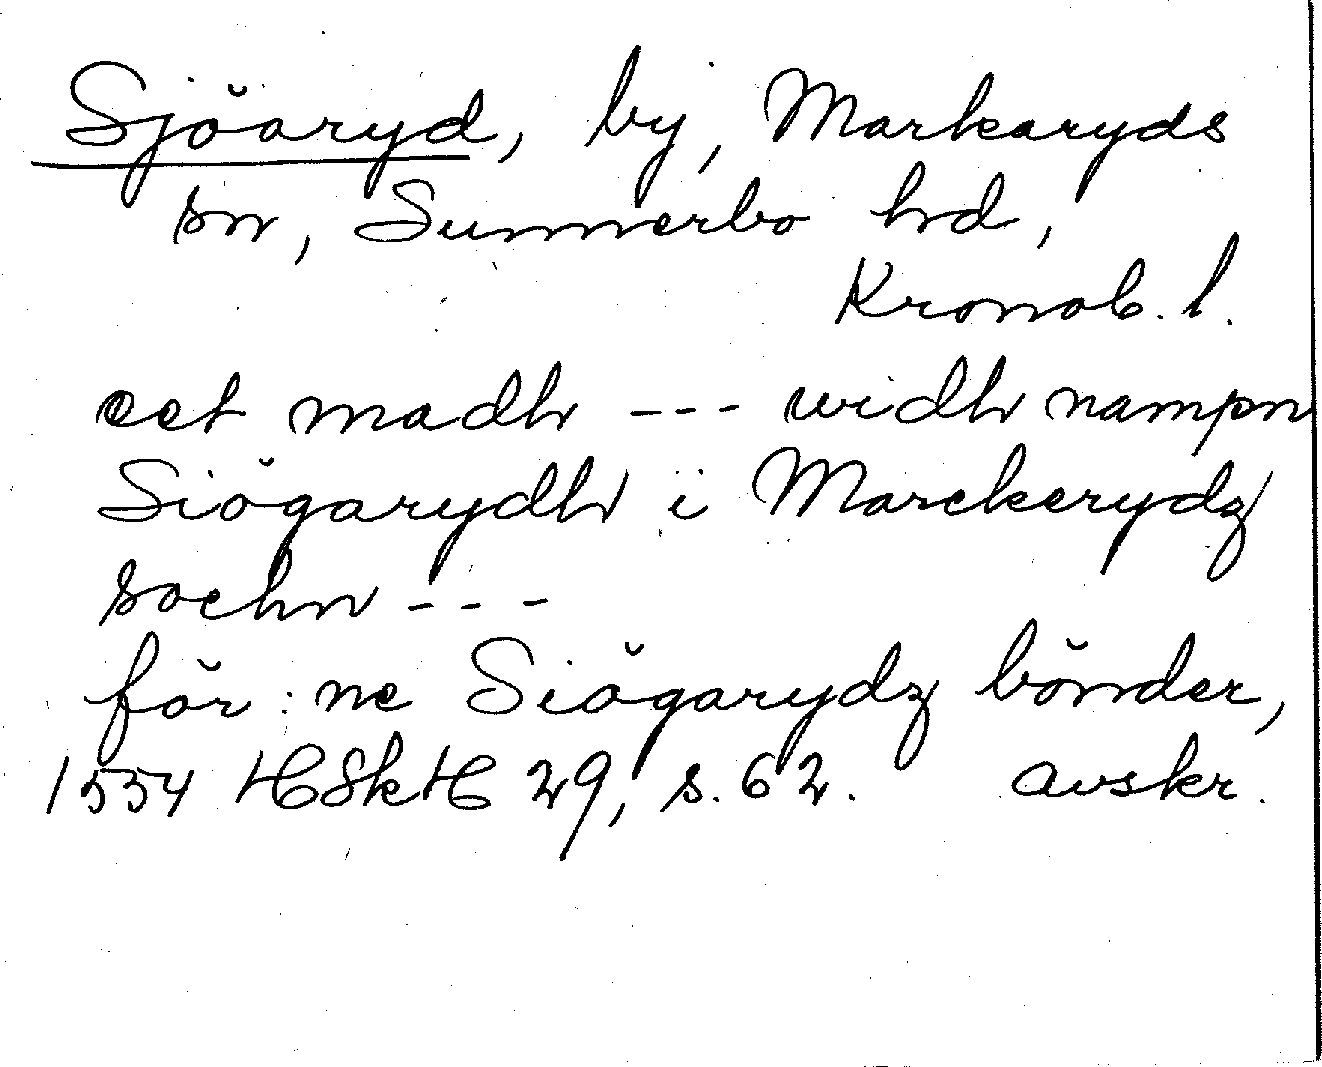 Sjöaryd, by, Markaryds
sn, Sunnerbo hd,
Kronob. l.
eet madh --- widh nampn
Siögarydh i Marckerydz
sochn ---
för:ne Siögarydz bönder,
1554 HSkH 29, s. 62. avskr.